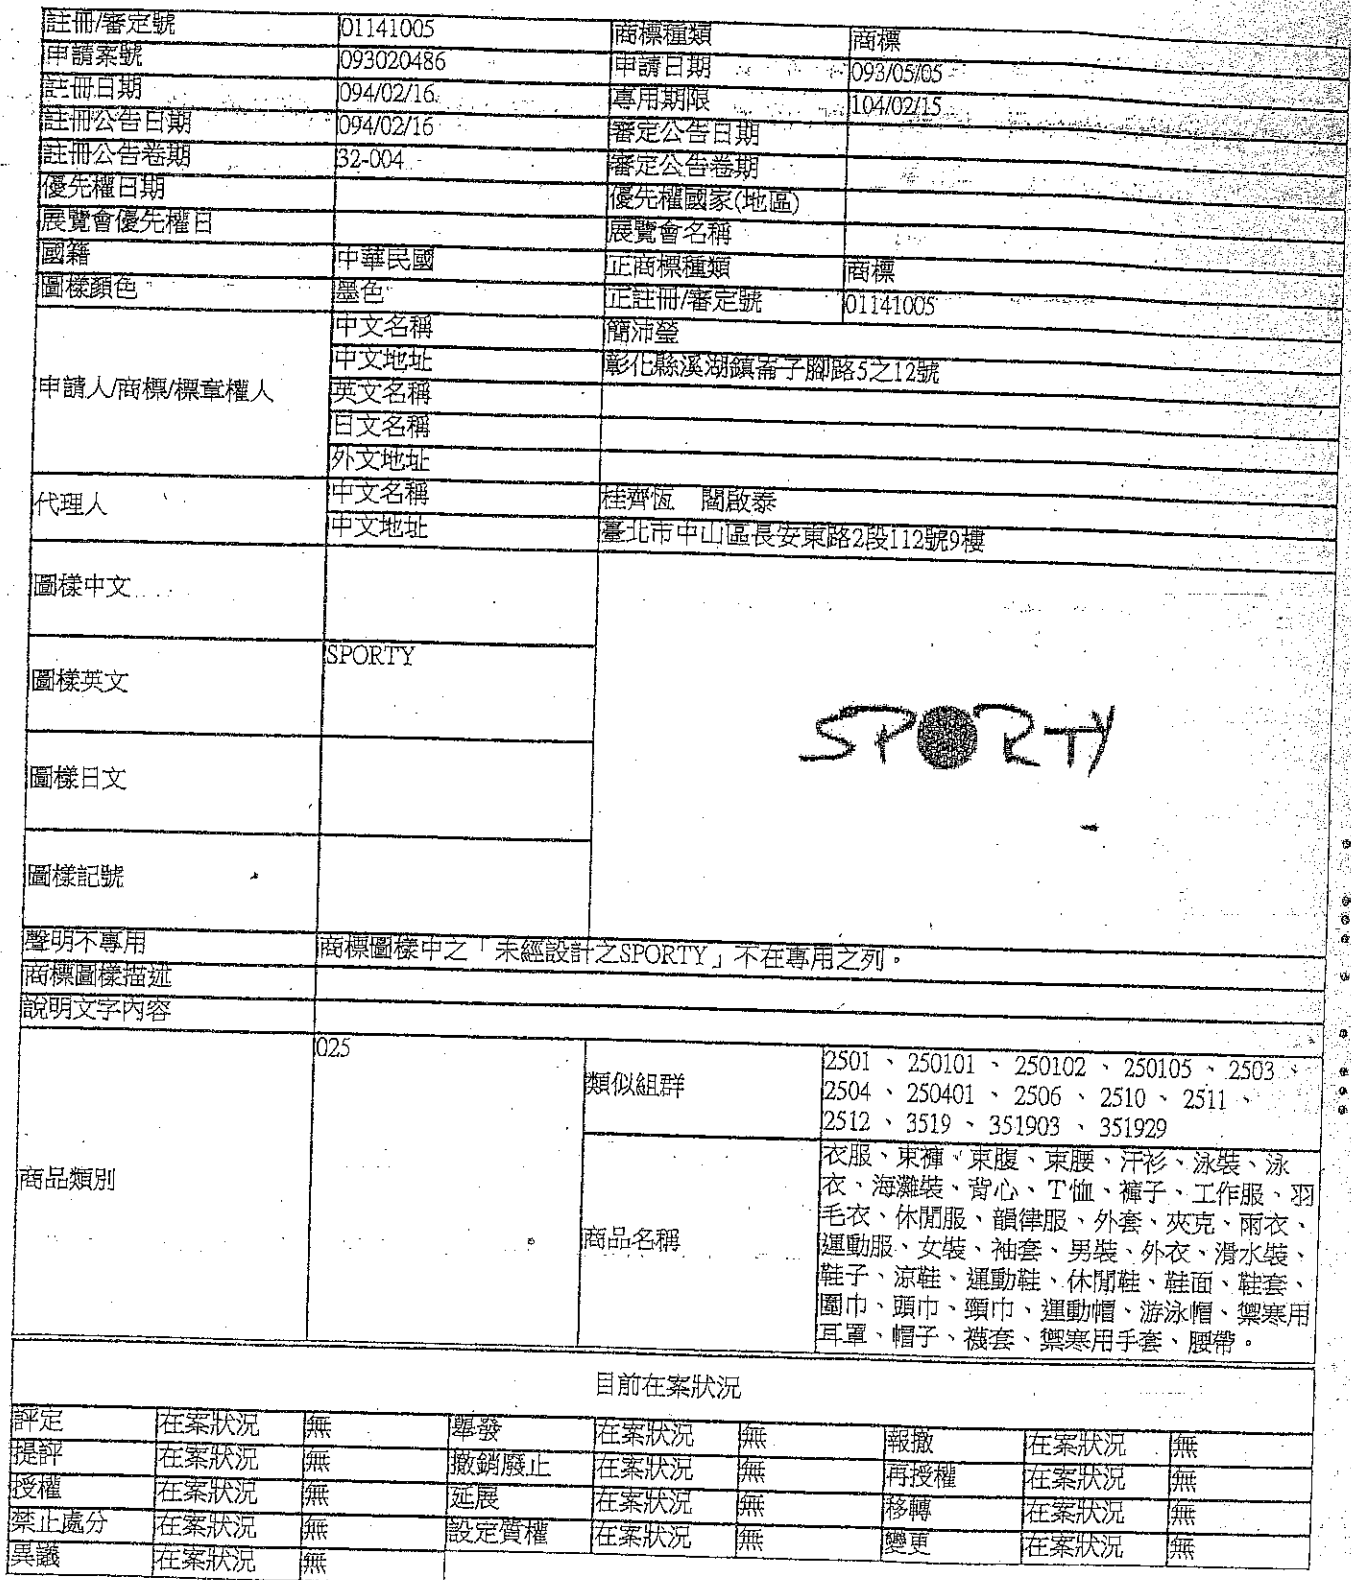 註冊/審定號 01141005 商標種類 商標
申請案號 093020486 申請日期 093/05/05
註冊日期 094/02/16 專用期限 104/02/15
註冊公告日期 094/02/16 審定公告日期
註冊公告卷期 32-004 審定公告卷期
優先權日期 優先權國家(地區)
展覽會優先權日 展覽會名稱
國籍 中華民國 正商標種類 商標
圖樣顏色 墨色 正註冊/審定號 01141005
申請人/商標/標章權人
中文名稱 簡沛瑩
中文地址 彰化縣溪湖鎮崙子腳路5之12號
英文名稱
日文名稱
外文地址
代理人
中文名稱 桂齊恆 閻啟泰
中文地址 臺北市中山區長安東路2段112號9樓
圖樣中文
圖樣英文 SPORTY
SPORTY
圖樣日文
圖樣記號
聲明不專用 商標圖樣中之「未經設計之SPORTY」不在專用之列。
商標圖樣描述
說明文字內容
商品類別 025
類似組群
2501、250101、250102、250105、2503、
2504、250401、2506、2510、2511、
2512、3519、351903、351929
商品名稱
衣服、束褲、束腹、束腰、汗衫、泳裝、泳
衣、海灘裝、背心、T恤、褲子、工作服、羽
毛衣、休閒服、韻律服、外套、夾克、雨衣、
運動服、女裝、袖套、男裝、外衣、滑水裝、
鞋子、涼鞋、運動鞋、休閒鞋、鞋面、鞋套、
圍巾、頭巾、頸巾、運動帽、游泳帽、禦寒用
耳罩、帽子、襪套、禦寒用手套、腰帶。
目前在案狀況
評定 在案狀況 無 舉發 在案狀況 無 報撤 在案狀況 無
提評 在案狀況 無 撤銷廢止 在案狀況 無 再授權 在案狀況 無
授權 在案狀況 無 延展 在案狀況 無 移轉 在案狀況 無
禁止處分 在案狀況 無 設定質權 在案狀況 無 變更 在案狀況 無
異議 在案狀況 無